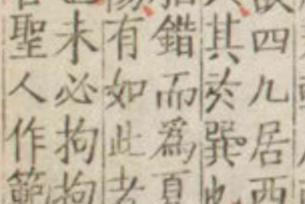 四九居西
其於巽也
錯而爲夏
有如此者
未必拘拘
聖人作範